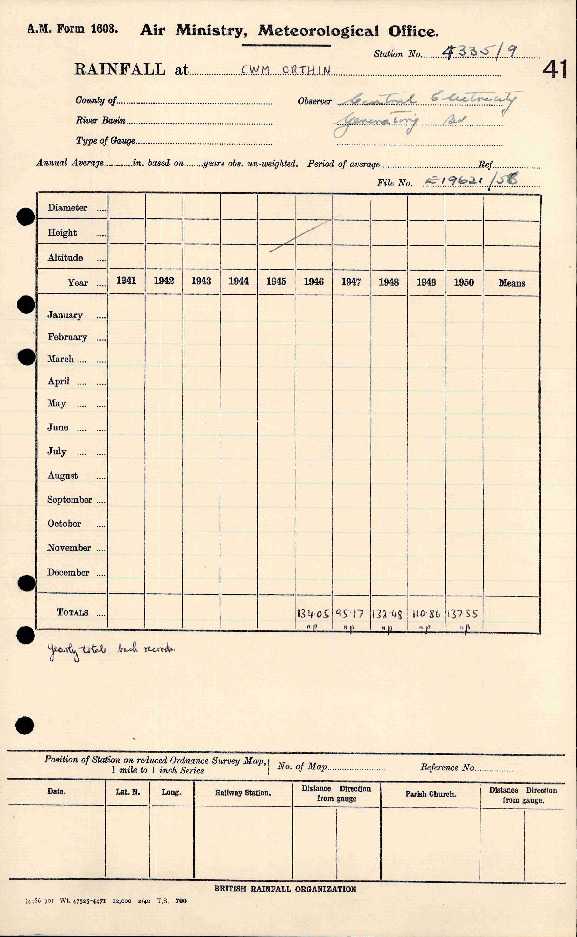 A.M. Form 1603. Air Ministry, Meteorological Office.
Station No. 4335/9
RAINFALL at CWM ORTHIN 41
County of Observer Central Electricity
River Basin Generating
Type of Gauge
Annual Average in. based on years obs. un-weighted. Period of average Ref.
File No. E19621/58
Diameter
Height
Altitude
Year 1941 1942 1943 1944 1945 1946 1947 1948 1949 1950 Means
January
February
March
April
May
June
July
August
September
October
November
December
TOTALS 134.05 95.17 132.48 110.86 137.55
np np np np np
Yearly totals back records.
Position of Station on reduced Ordnance Survey Map, 1 mile to 1 inch Series No. of Map Reference No.
Date. Lat. N. Long. Railway Station. Distance Direction from gauge Parish Church. Distance Direction from gauge.
BRITISH RAINFALL ORGANIZATION
Wt. 47525-4471 12,000 2/40 T.S. 700